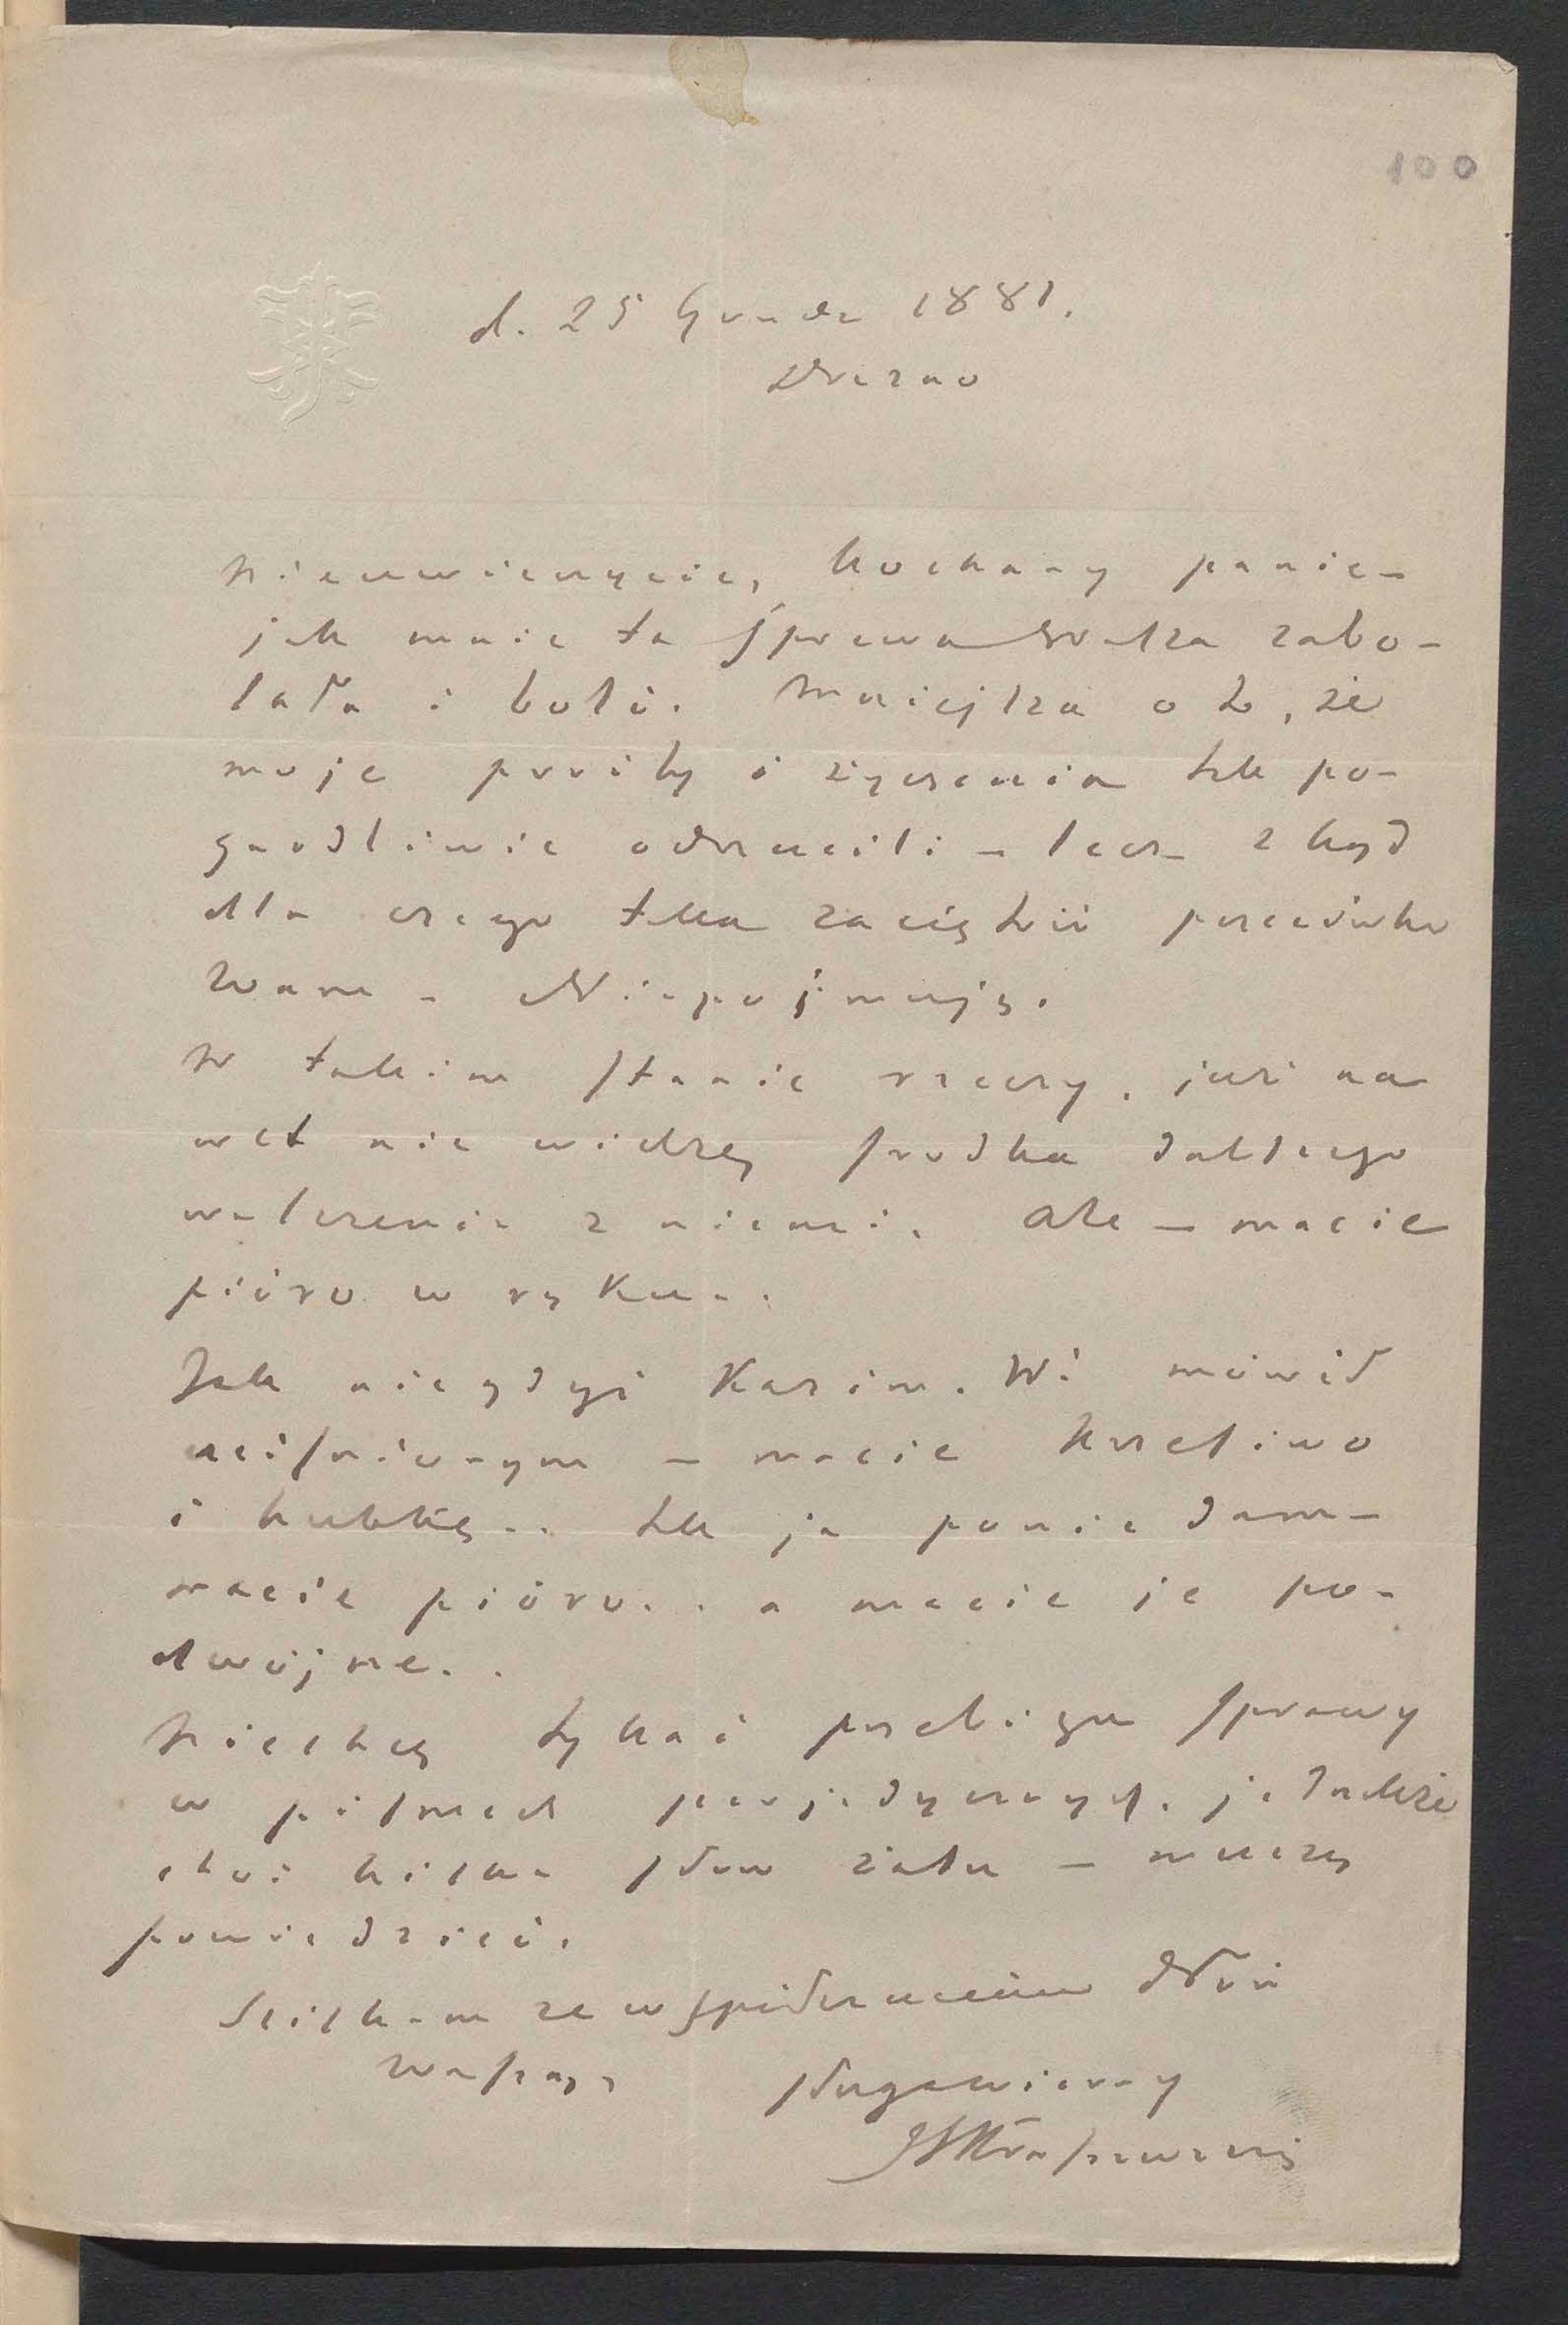 100
d. 25 Grudn 1881.
Drezno
Nieuwierzycie, kochany panie –
jak mnie ta sprawa wasza zabo-
lała i boli. Mniejsza o to, że
moje prośby i życzenia tak po-
gardliwie odrzucili – lecz zkąd
dla czego taka zaciętość przeciwko
wam – Niepojmuję.
W takim stanie rzeczy, już na
wet nie widzę środka dalszego
walczenia z niemi. Ale – macie
pióro w ręku..
Jak niegdyś Kazim. W. mówił
uciśnionym – macie krzesiwo
i hubkę.. tak ja powiedam –
macie pióro.. a macie je po-
dwójne..
Niechcę tykać przebiegu sprawy
w pismach perjodycznych, jednakże
choć kilka słów żalu – muszę
powiedzieć.
Ściskam ze współczuciem dłoń
Waszą,
sługa wierny
JIKraszewski